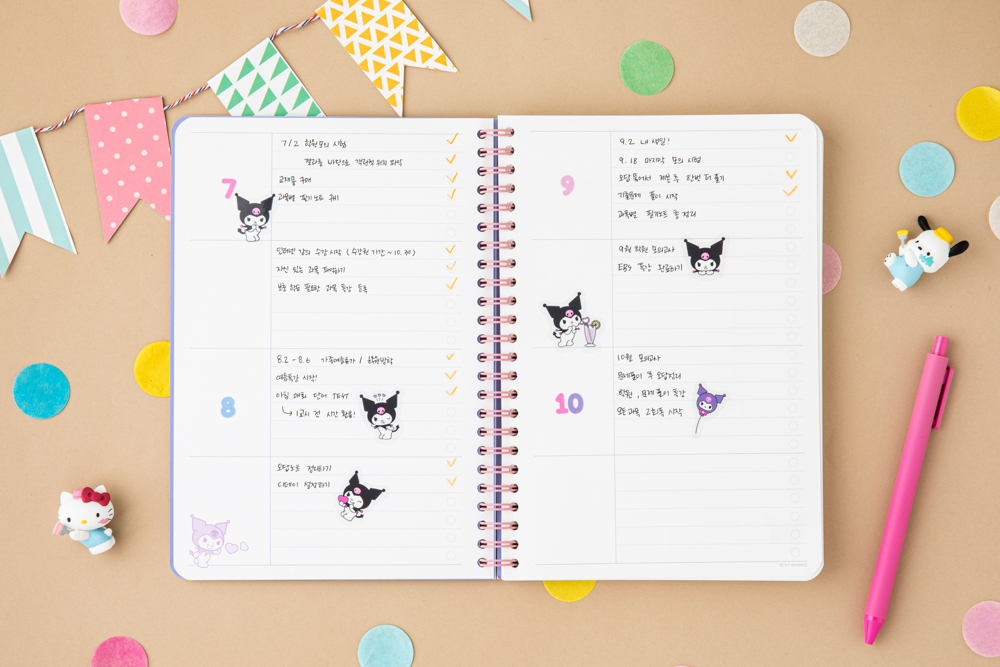 7
7/2 학원 모의 시험
결과를 바탕으로 객관적 위치 파악
교재들 구매
과목별 필기노트 구비
인터넷 강의 수강 시작 (수강권 기간 ~10.30)
자신 있는 과목 예습하기
보충 학습 필요한 과목 특강 등록
8
8.2 - 8.6 가족여름휴가 / 학원방학
여름특강 시작!
아침 매회 단어 TEST
1교시 전 시간 활용!
오답노트 정리하기
디데이 설정하기
9
9.2 내 생일!
9.18 마지막 모의 시험
오답 문어서 제본 후 한번 더 풀기
기출문제 풀이 시작
과목별 필기노트 총 정리
9월 학원 모의고사
EBS 특강 완료하기
10
10월 모의고사
문제풀이 후 오답정리
학원, 문제 풀이 특강
모든 과목 2회독 시작